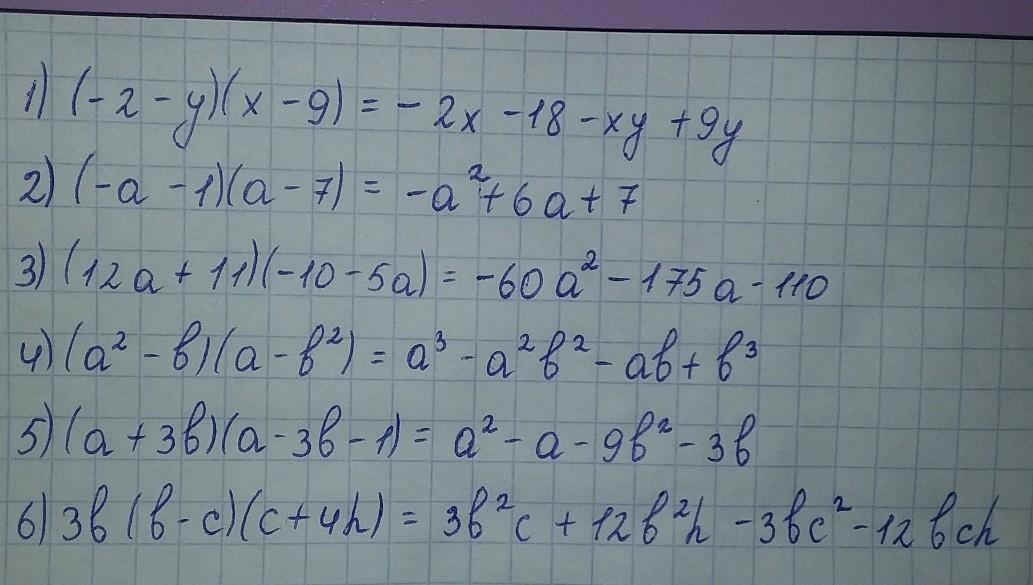 1) (-2 - y)(x - 9) = - 2x - 18 - xy + 9y
2) (-a - 1)(a - 7) = -a² + 6a + 7
3) (12a + 11)(-10 - 5a) = -60a² - 175a - 110
4) (a² - b)(a - b²) = a³ - a²b² - ab + b³
5) (a + 3b)(a - 3b - 1) = a² - a - 9b² - 3b
6) 3b (b - c)(c + 4h) = 3b²c + 12b²h - 3bc² - 12bch